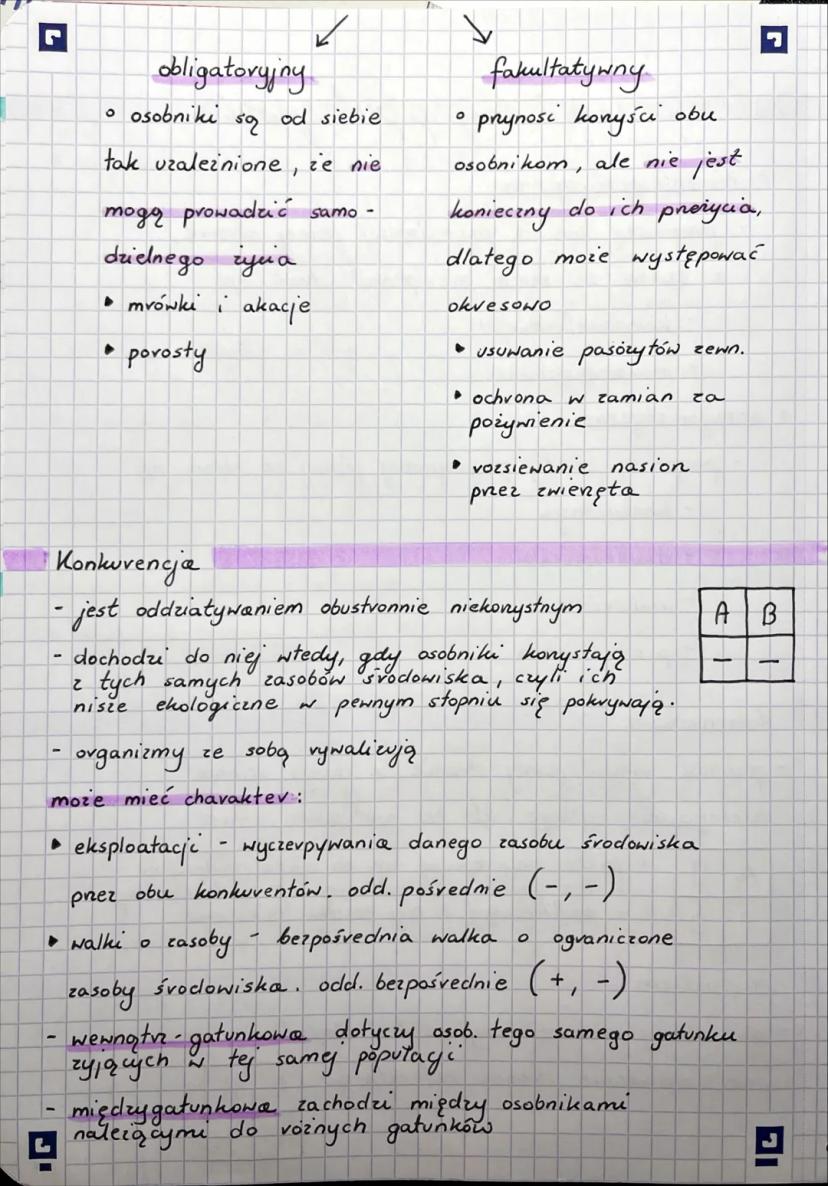 obligatoryjny
◦ osobniki są od siebie
tak uzależnione, że nie
mogą prowadzić samo-
dzielnego życia
‣ mrówki i akacje
‣ porosty
fakultatywny
◦ przynosi korzyści obu
osobnikom, ale nie jest
konieczny do ich przeżycia,
dlatego może występować
okresowo
‣ usuwanie pasożytów zewn.
‣ ochrona w zamian za
pożywienie
‣ rozsiewanie nasion
przez zwierzęta
Konkurencja
- jest oddziaływaniem obustronnie niekorzystnym
- dochodzi do niej wtedy, gdy osobniki korzystają
z tych samych zasobów środowiska, czyli ich
nisze ekologiczne w pewnym stopniu się pokrywają.
A B
– –
- organizmy ze sobą rywalizują
może mieć charakter:
‣ eksploatacji - wyczerpywania danego zasobu środowiska
przez obu konkurentów. odd. pośrednie (-, -)
‣ walki o zasoby - bezpośrednia walka o ograniczone
zasoby środowiska. odd. bezpośrednie (+, -)
- wewnątrz-gatunkowa dotyczy osob. tego samego gatunku
żyjących w tej samej populacji
- międzygatunkowa zachodzi między osobnikami
należącymi do różnych gatunków